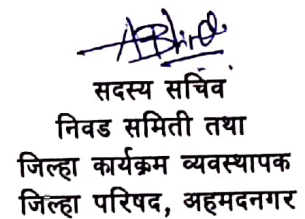 सदस्य सचिव
निवड समिती तथा
जिल्हा कार्यक्रम व्यवस्थापक
जिल्हा परिषद, अहमदनगर